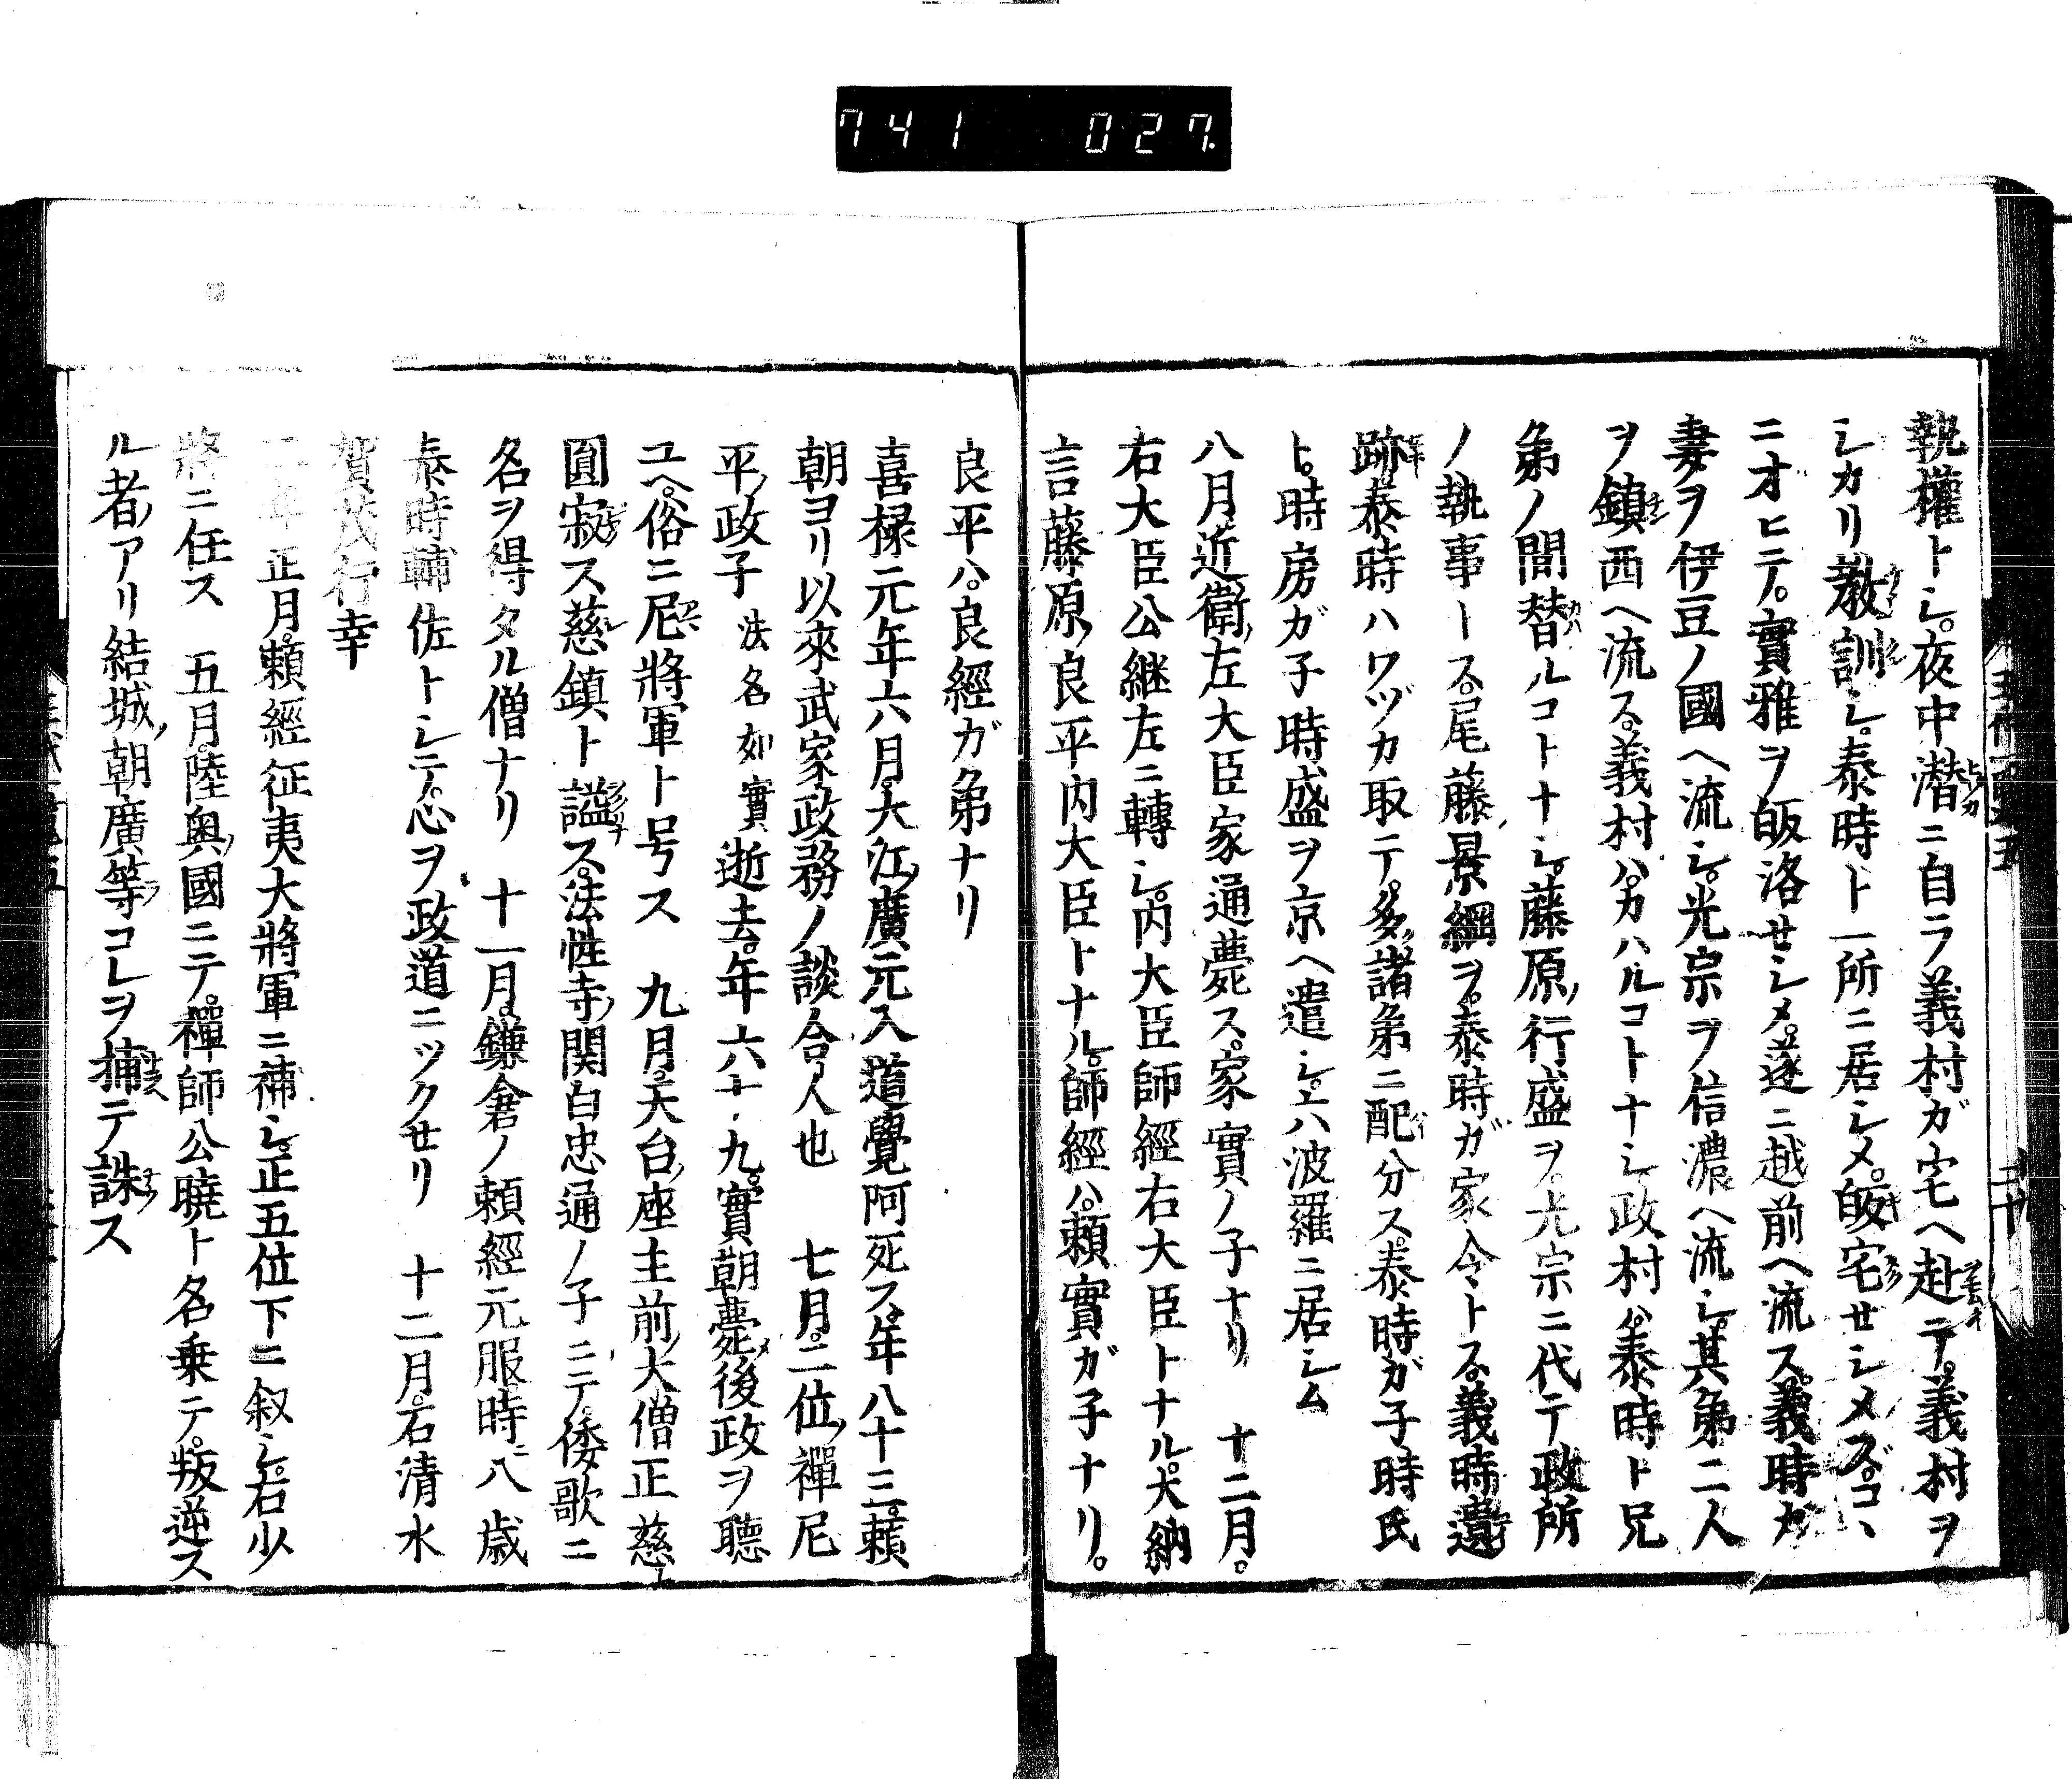 741 027
執權トシ。夜中潜ニ自ラ義村ガ宅ヘ赴テ。義村ヲ
シカリ教訓シ。泰時ト一所ニ居シメ。皈宅セシメズ。コヽ
ニオヒテ。實雅ヲ皈洛セシメ。遂ニ越前ヘ流ス。義時ガ
妻ヲ伊豆ノ國ヘ流シ。光宗ヲ信濃ヘ流シ。其弟二人
ヲ鎮西ヘ流ス。義村ハ。カハルコトナシ政村ハ。泰時ト兄
弟ノ間替ルコトナシ。藤原ノ行盛ヲ。光宗ニ代テ政所
ノ執事トス。尾藤ノ景綱ヲ。泰時ガ家令トス。義時遺
跡泰時ハワヅカ取テ。多ク諸弟ニ配分ス。泰時ガ子時氏
ト。時房ガ子時盛ヲ京ヘ遣シ。六波羅ニ居シム
八月近衛ノ左大臣家通薨ス。家實ノ子ナリ 十二月。
右大臣公継左ニ轉シ。内大臣師經右大臣トナル。大納
言藤原ノ良平内大臣トナル。師經ハ。頼實ガ子ナリ。
良平ハ。良經ガ弟ナリ
喜禄元年六月。大江ノ廣元入道覺阿死ス。年八十三。頼
朝ヨリ以來武家政務ノ談合人也 七月。二位ノ禪尼
平ノ政子法名如實逝去。年六十九。實朝薨メ後政ヲ聴
ユヘ。俗ニ尼將軍ト号ス 九月。天台ノ座主前ノ大僧正慈
圓寂ス慈鎮ト謚ス。法性寺ノ関白忠通ノ子ニテ。倭歌ニ
名ヲ得タル僧ナリ 十一月。鎌倉ノ頼經元服時ニ八歳
泰時輔佐トシテ。心ヲ政道ニツクセリ 十二月。石清水
賀茂行幸
二年正月。頼經征夷大將軍ニ補シ。正五位下ニ叙シ。右少
將ニ任ス 五月。陸奥ノ國ニテ。禪師公曉ト名乗テ。叛逆ス
ル者アリ結城ノ朝廣等コレヲ捕テ誅ス